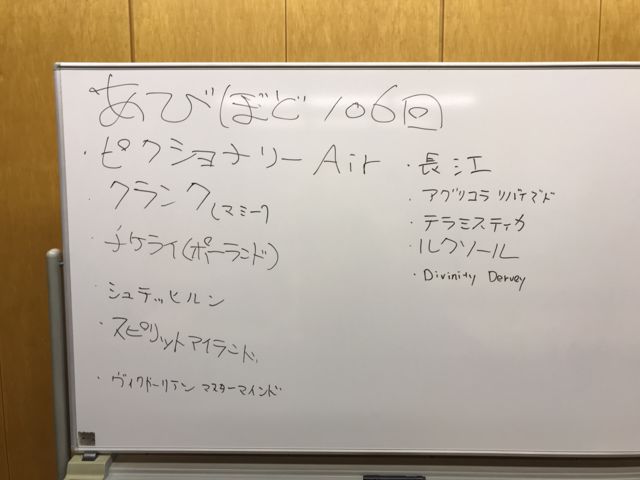 あびぼど106回
・ピクショナリーAir
・クランク(マミー)
・チケライ(ポーランド)
・シュテッヒルン
・スピリットアイランド
・ヴィクトーリアン マスターマインド
・長江
・アグリコラ リバイズド
・テラミスティカ
・ルクソール
・Divinity Dervey